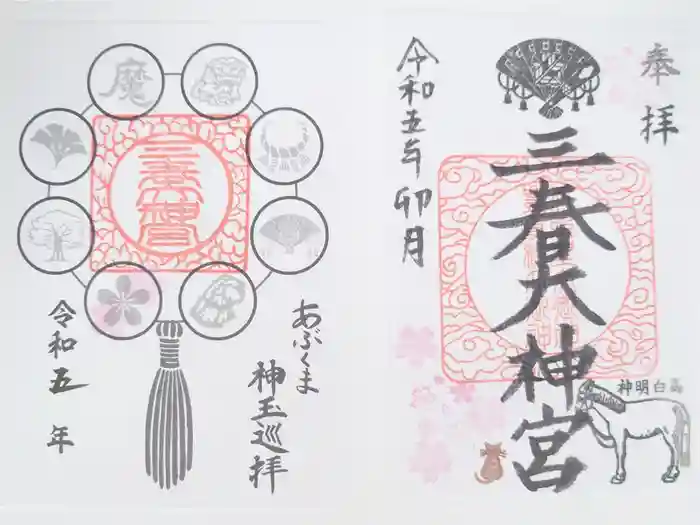 奉拝
三春大神宮
令和五年卯月
高白明神
魔
あぶくま
神玉巡拝
令和五年